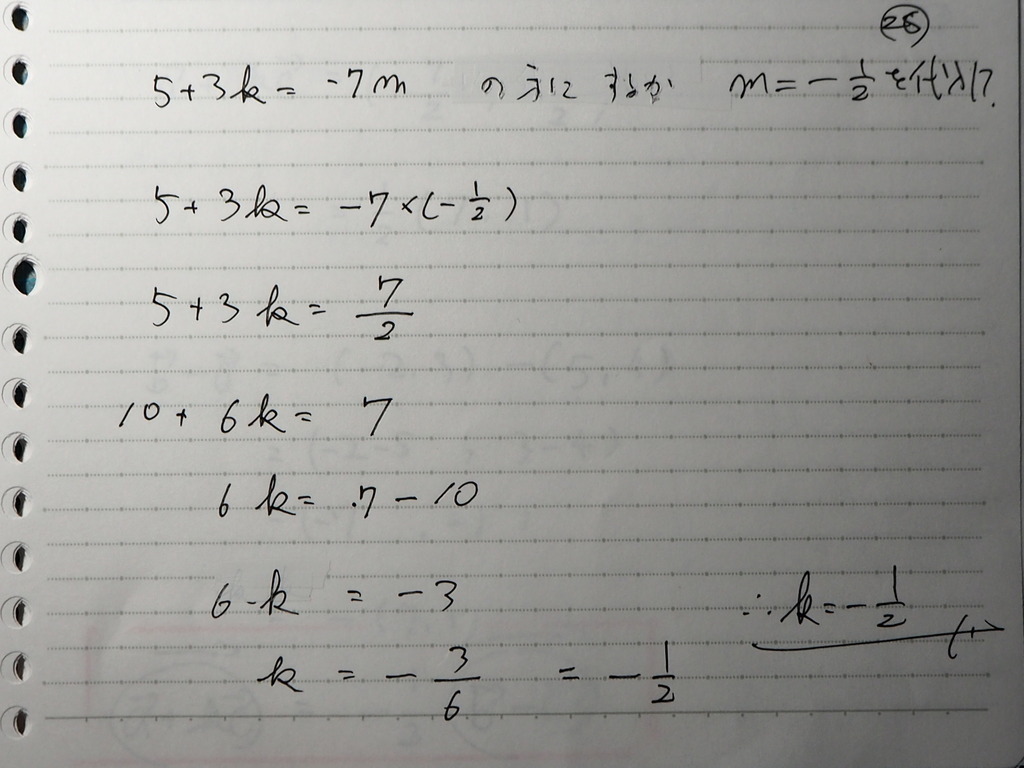 26
5+3k = -7m の方にするか m = -1/2 を代入。
5+3k = -7×(-1/2)
5+3k = 7/2
10+6k = 7
6k = 7-10
6k = -3
∴k = -1/2
k = -3/6 = -1/2